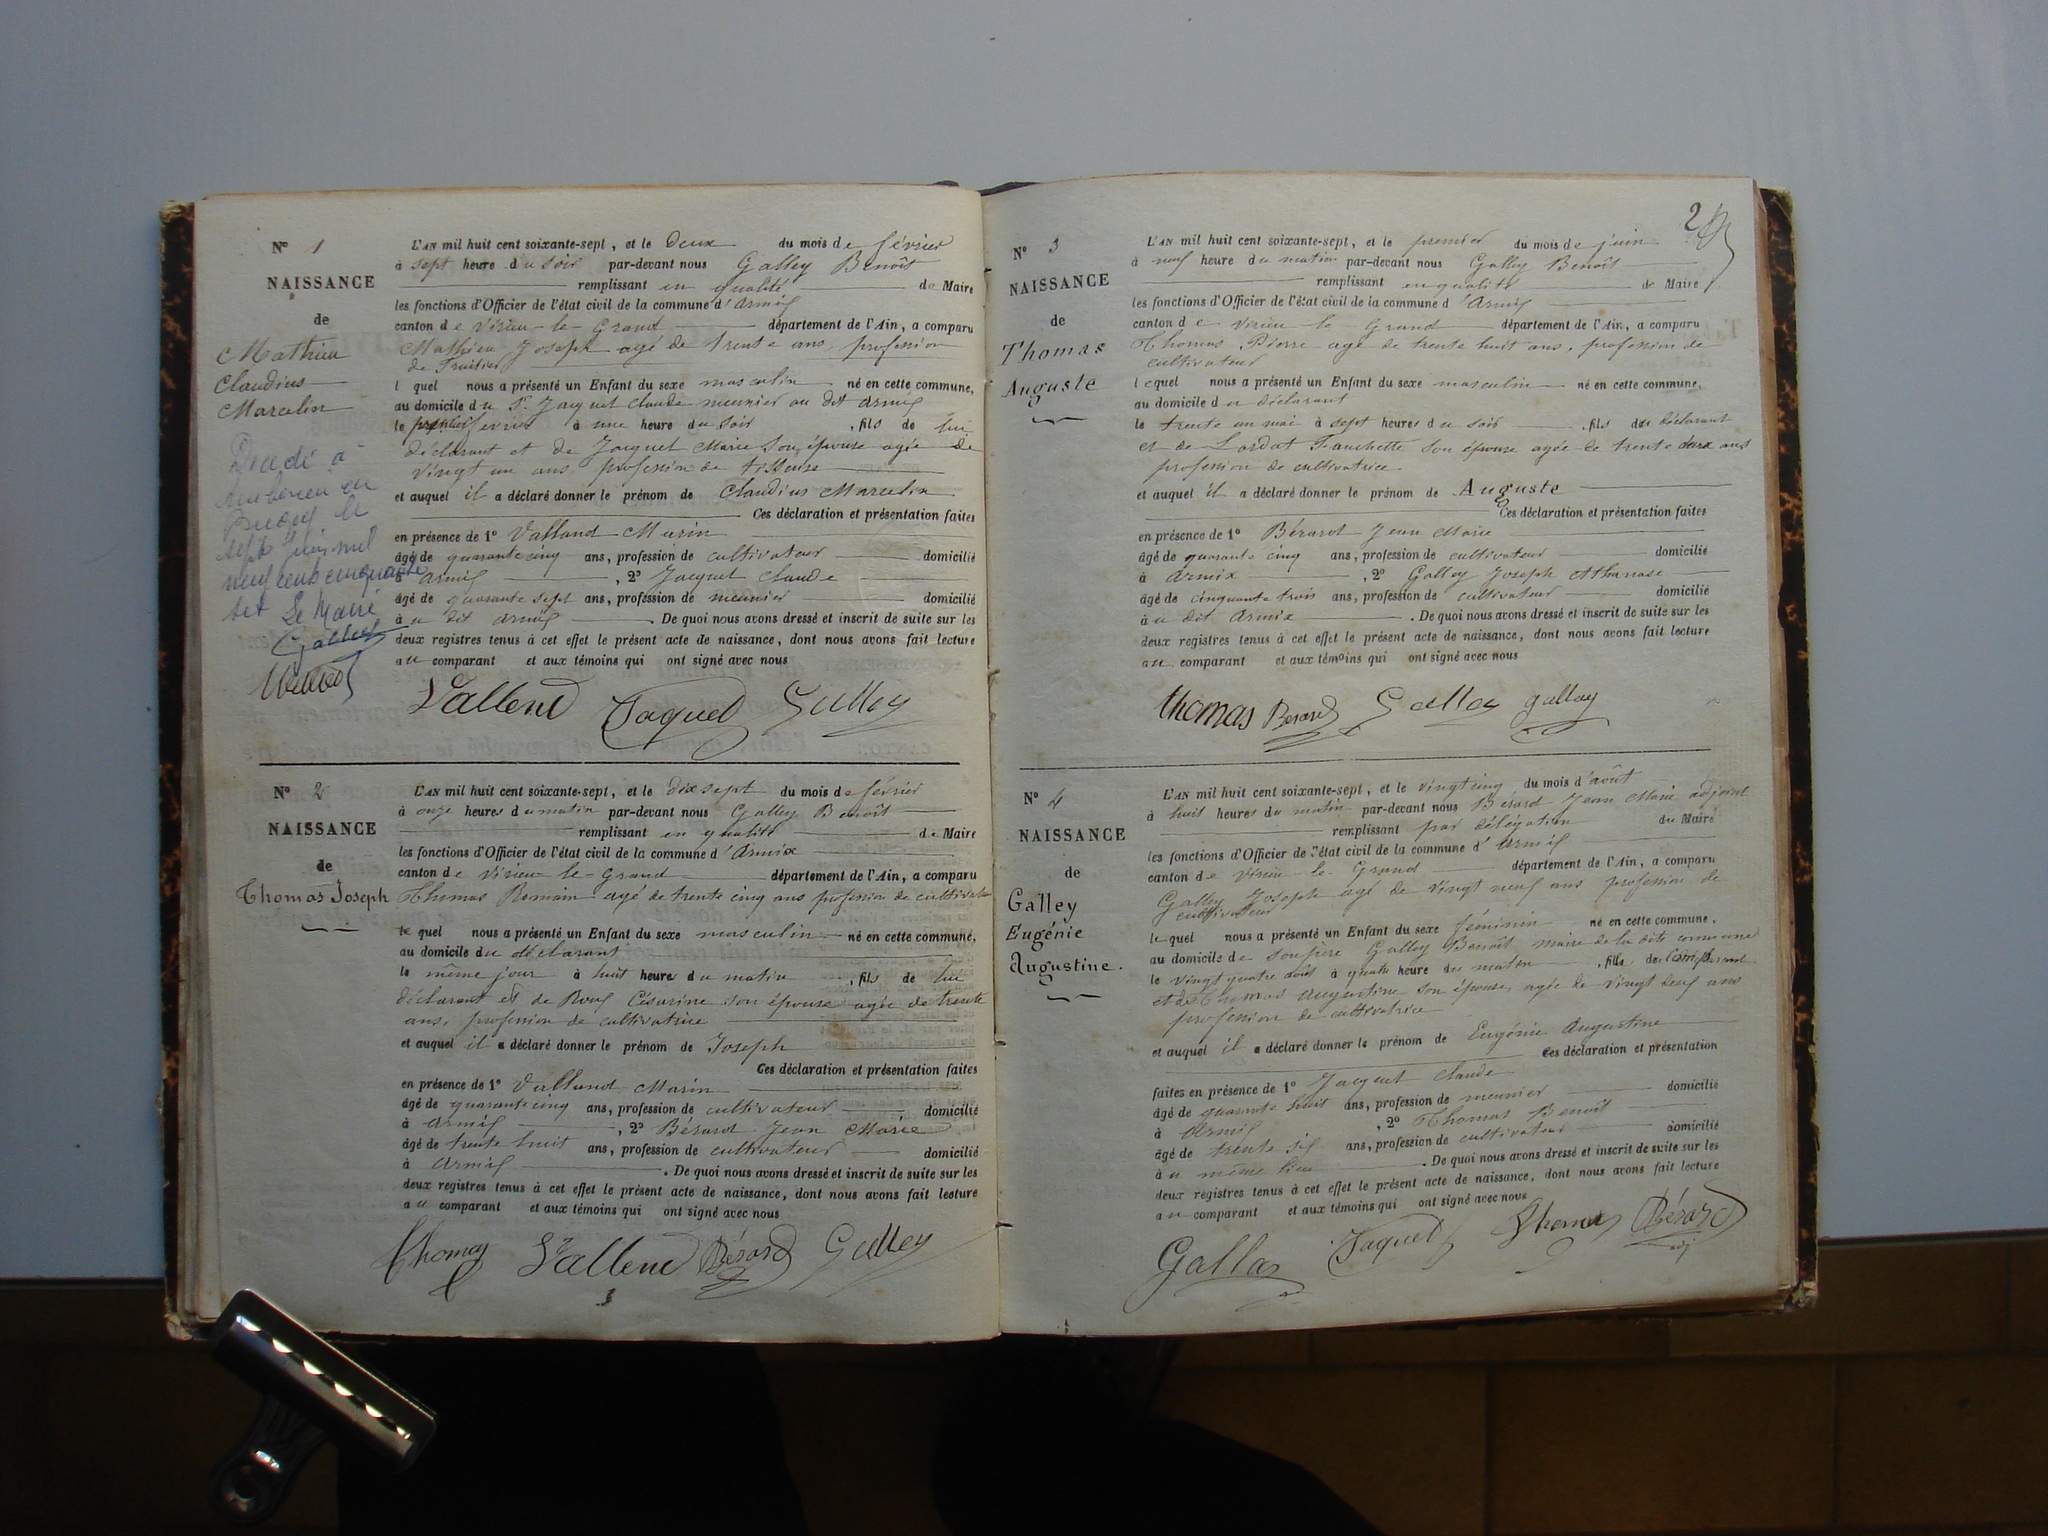 N° 1
NAISSANCE
de
Mathieu
Claudius
Marcelin
Décédé à
en
Bugey le
sept juin mil
neuf cent cinquante
set Le Maire
L'AN mil huit cent soixante-sept, et le deux du mois de février
à sept heure du soir par-devant nous Galley Benoît
remplissant en qualité de Maire
les fonctions d'Officier de l'état civil de la commune d'Armix
canton de Virieu-le-Grand département de l'Ain, a comparu
Mathieu Joseph agé de trente ans, profession
de Fruitier
lequel nous a présenté un Enfant du sexe masculin né en cette commune,
au domicile du Sr. Jacquet Claude meunier au dit Armix
le premier février à une heure du soir, fils de lui
déclarant et de Jacquet Marie son épouse agée de
vingt un ans profession de
et auquel il a déclaré donner le prénom de Claudius Marcelin
Ces déclaration et présentation faites
en présence de 1° Valland Marin
âgé de quarante cinq ans, profession de cultivateur domicilié
à Armix, 2° Jacquet Claude
âgé de quarante sept ans, profession de meunier domicilié
à u dit Armix. De quoi nous avons dressé et inscrit de suite sur les
deux registres tenus à cet effet le présent acte de naissance, dont nous avons fait lecture
au comparant et aux témoins qui ont signé avec nous
Vallend Jaquet Galley
N° 2
NAISSANCE
de
Thomas Joseph
L'AN mil huit cent soixante-sept, et le dix sept du mois de février
à onze heures du matin par-devant nous Galley Benoît
remplissant en qualité de Maire
les fonctions d'Officier de l'état civil de la commune d'Armix
canton de Virieu-le-Grand département de l'Ain, a comparu
Thomas Romain agé de trente cinq ans profession de cultivateur
lequel nous a présenté un Enfant du sexe masculin né en cette commune,
au domicile du déclarant
le même jour à huit heures du matin, fils de lui
déclarant et de Roux Césarine son épouse agée de trente
ans, profession de cultivatrice
et auquel il a déclaré donner le prénom de Joseph
Ces déclaration et présentation faites
en présence de 1° Valland Marin
âgé de quarante cinq ans, profession de cultivateur domicilié
à Armix, 2° Bérard Jean Marie
âgé de trente huit ans, profession de cultivateur domicilié
à Armix. De quoi nous avons dressé et inscrit de suite sur les
deux registres tenus à cet effet le présent acte de naissance, dont nous avons fait lecture
au comparant et aux témoins qui ont signé avec nous
Thomas Vallend Bérard Galley
2
N° 3
NAISSANCE
de
Thomas
Auguste
L'AN mil huit cent soixante-sept, et le premier du mois de juin
à neuf heure du matin par-devant nous Galley Benoît
remplissant en qualité de Maire
les fonctions d'Officier de l'état civil de la commune d'Armix
canton de Virieu le Grand département de l'Ain, a comparu
Thomas Pierre agé de trente huit ans, profession de
cultivateur
lequel nous a présenté un Enfant du sexe masculin né en cette commune,
au domicile du déclarant
le trente un mai à sept heures du soir, fils du déclarant
et de Lordat Fanchette son épouse agée de trente deux ans
profession de cultivatrice
et auquel il a déclaré donner le prénom de Auguste
Ces déclaration et présentation faites
en présence de 1° Bérard Jean Marie
âgé de quarante cinq ans, profession de cultivateur domicilié
à Armix, 2° Galley Joseph Athanase
âgé de cinquante trois ans, profession de cultivateur domicilié
à u dit Armix. De quoi nous avons dressé et inscrit de suite sur les
deux registres tenus à cet effet le présent acte de naissance, dont nous avons fait lecture
au comparant et aux témoins qui ont signé avec nous
thomas Berard Galley galley
N° 4
NAISSANCE
de
Galley
Eugénie
Augustine.
L'AN mil huit cent soixante-sept, et le vingt cinq du mois d'août
à huit heures du matin par-devant nous Bérard Jean Marie adjoint
remplissant par délégation du Maire
les fonctions d'Officier de l'état civil de la commune d'Armix
canton de Virieu-le-Grand département de l'Ain, a comparu
Galley Joseph agé de vingt neuf ans profession de
cultivateur
lequel nous a présenté un Enfant du sexe féminin né en cette commune,
au domicile de son père Galley Benoît maire de la dite commune
le vingt quatre août à quatre heure du matin, fille du
et de Thomas Augustine son épouse, agée de vingt neuf ans
profession de cultivatrice
et auquel il a déclaré donner le prénom de Eugénie Augustine
Ces déclaration et présentation
faites en présence de 1° Jacquet Claude
âgé de quarante huit ans, profession de meunier domicilié
à Armix, 2° Thomas Benoît
âgé de trente six ans, profession de cultivateur domicilié
à u même lieu. De quoi nous avons dressé et inscrit de suite sur les
deux registres tenus à cet effet le présent acte de naissance, dont nous avons fait lecture
au comparant et aux témoins qui ont signé avec nous
Galley Jaquet Thomas Bérard
adj